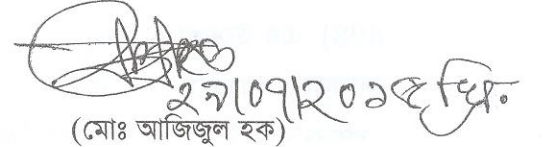 ২৯/০৭/২০১৫ খ্রি.
(মোঃ আজিজুল হক)